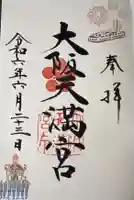 奉拝
大阪天満宮
令和六年六月二十三日